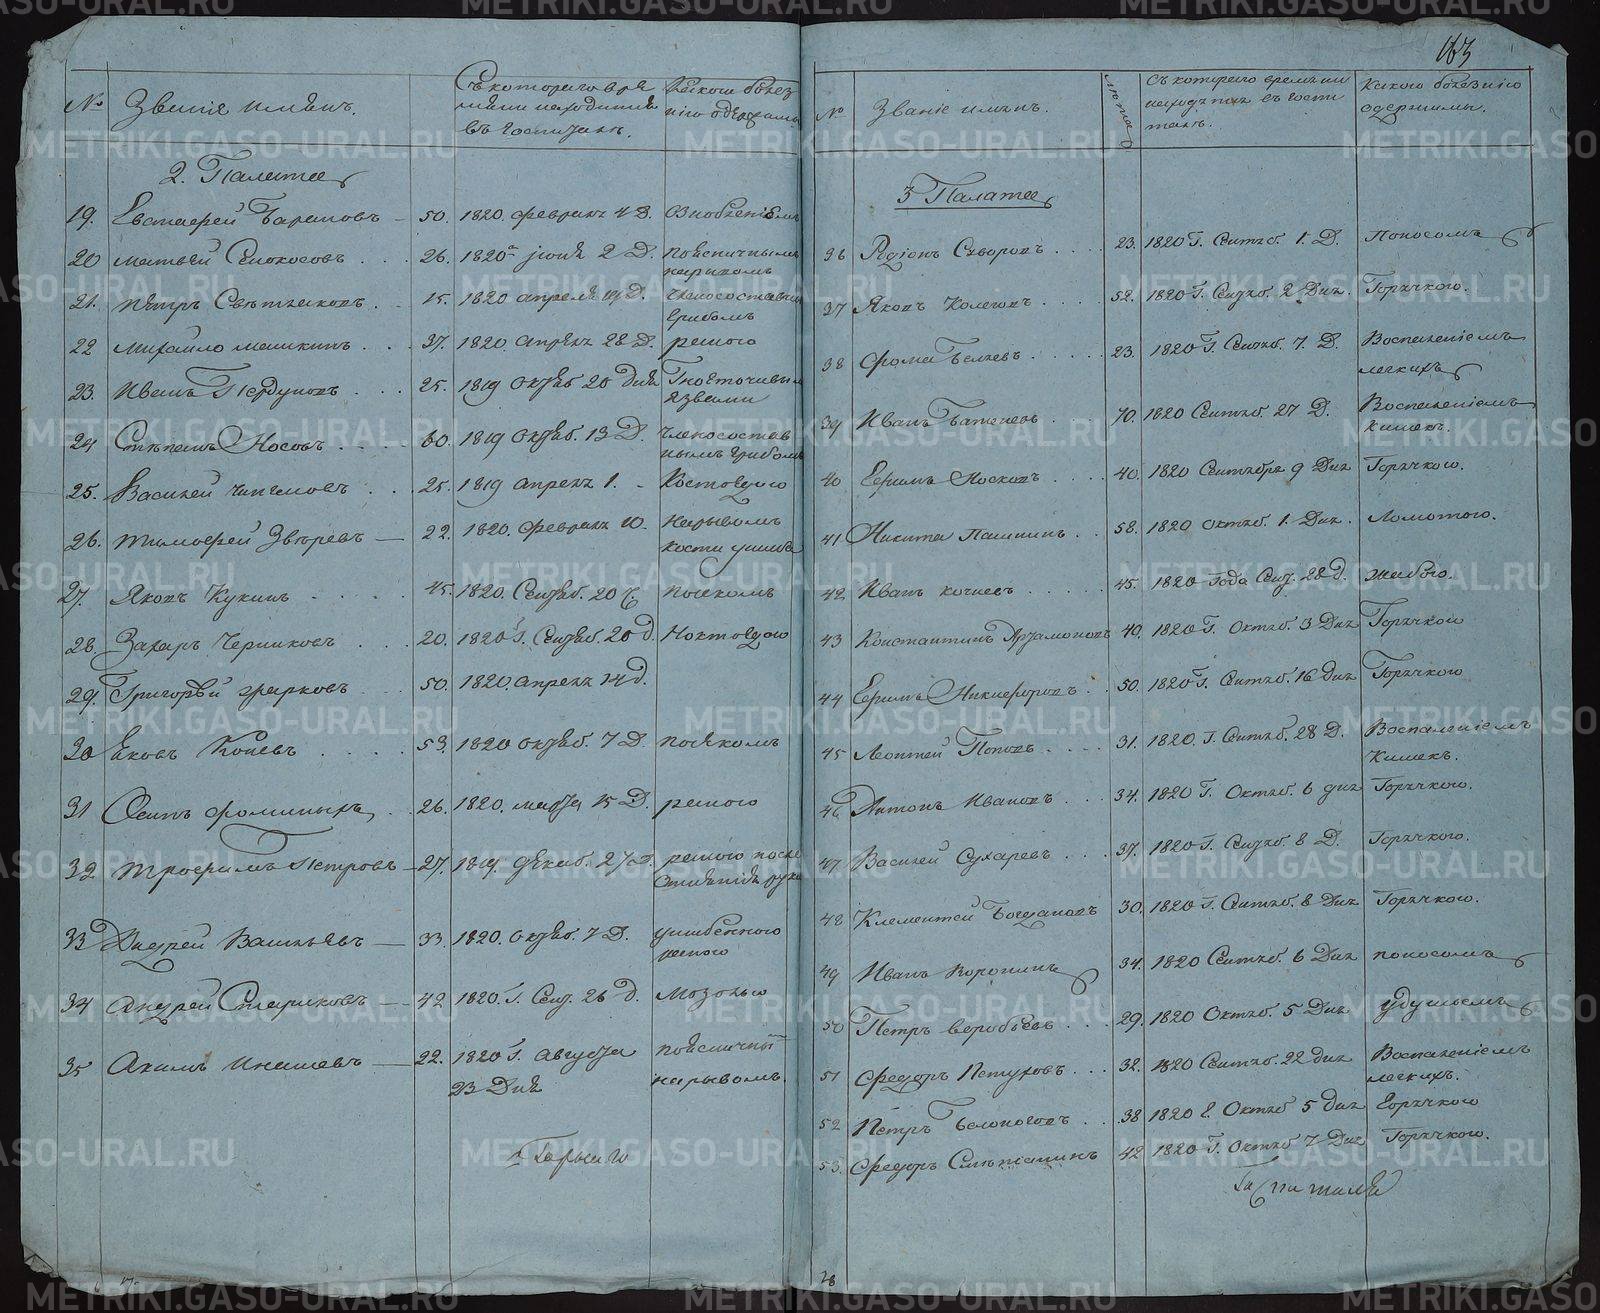 163
№ Званіе имянъ. Съ котораго вре Какою болез
мяни находится нію одержимы
въ госпитале.
2. Палата
19. Евстафей Барановъ 50. 1820 февраля 4 Д. Ознобленіемъ
20 матвей Сенокосовъ 26. 1820 июня 2 Д. поясничнымъ
нарывомъ
21. пётръ 15. 1820 апреля 19 Д. Членосоставнымъ
грибомъ
22 михайло маликинъ 37. 1820. апреля 28 Д. раною
23. Иванъ 25. 1819 октяб 20 дня Гноеточивыми
язвами
24 Стѣпанъ Носовъ 60. 1819 октяб. 13 Д. членосостав
нымъ грибомъ
25. Василей 25. 1819 апреля 1. Костоедою
26. тимофей Звѣревъ 22. 1820. февраля 10. Нарывомъ
кости
27. Яковъ Кукинъ 45. 1820. Сентяб. 20
28. Захаръ Черниковъ 20. 1820 г. Сентяб. 20 д. Ноктоедою
29. Григорѣй 50. 1820. апреля 14 д.
30 Яковъ Коневъ 53. 1820 октяб. 7 Д.
31 Осипъ фоминыхъ 26. 1820. марта 15 Д. раною
32 трофимъ Петровъ 27. 1819. декаб. 27 д. раною после
отнятія руки
33 Андрей Васильевъ 33. 1820. Октяб. 7 Д. ушибенною
раною
34 андрей Стариковъ 42. 1820 г. Сент. 26 д. Мозолью
35 Акимъ 22. 1820 г. августа поясничны
23 Дня нарывомъ.
№ Званіе имянъ. лѣта Съ котораго времяни Какою болезнію
находятца въ госпи одержимы.
тале.
3 Палата
36 Родіонъ Суворовъ 23. 1820 г. Сентяб. 1. Д. Поносомъ
37 Яковъ Колеговъ 52. 1820 г. Сентяб. 2 Дня Горячкою.
38 фома Беляевъ 23. 1820 г. Сентяб. 7 Д. Воспаленіемъ
легкихъ
39 Иванъ 70. 1820 Сентяб. 27 Д. Воспаленіемъ
кишекъ.
40 Ефимъ Носковъ 40. 1820 Сентября 9 Дня Горячкою.
41 Никита Пашнинъ 58. 1820 октяб. 1. Дня. Ломотою.
42 Иванъ 45. 1820 года Сент. 28 д. жабою.
43 Константинъ Артамоновъ 40. 1820 г. Октяб. 3 Дня Горячкою
44 Ефимъ Никифоровъ 50. 1820 г. Сентяб. 16 Дня Горячкою
45 Леонтей Поповъ 31. 1820. г. Сентяб. 28 Д. Воспаленіемъ
Кишекъ.
46 Антонъ Ивановъ 34. 1820 г. Октяб. 6 дня Горячкою.
47 Василей Сухаревъ 37. 1820 г. Сентяб. 8 Д. Горячкою.
48 Клементей Богдановъ 30. 1820 г. Сентяб. 8 Дня Горячкою.
49 Иванъ Воронинъ 34. 1820 Сентяб. 6 Дня поносомъ
50 Петръ воробьевъ 29. 1820 Октяб. 5 Дня удушьемъ
51 Федоръ Петуховъ 32. 1820 Сентяб. 22 дня Воспаленіемъ
легкихъ.
52 Пётръ Белоноговъ 38 1820 г. Октяб 5 дня Горячкою
53. Федоръ 42 1820 г. Окт 7 Дня Горячкою.
28
METRIKI.GASO-URAL.RU